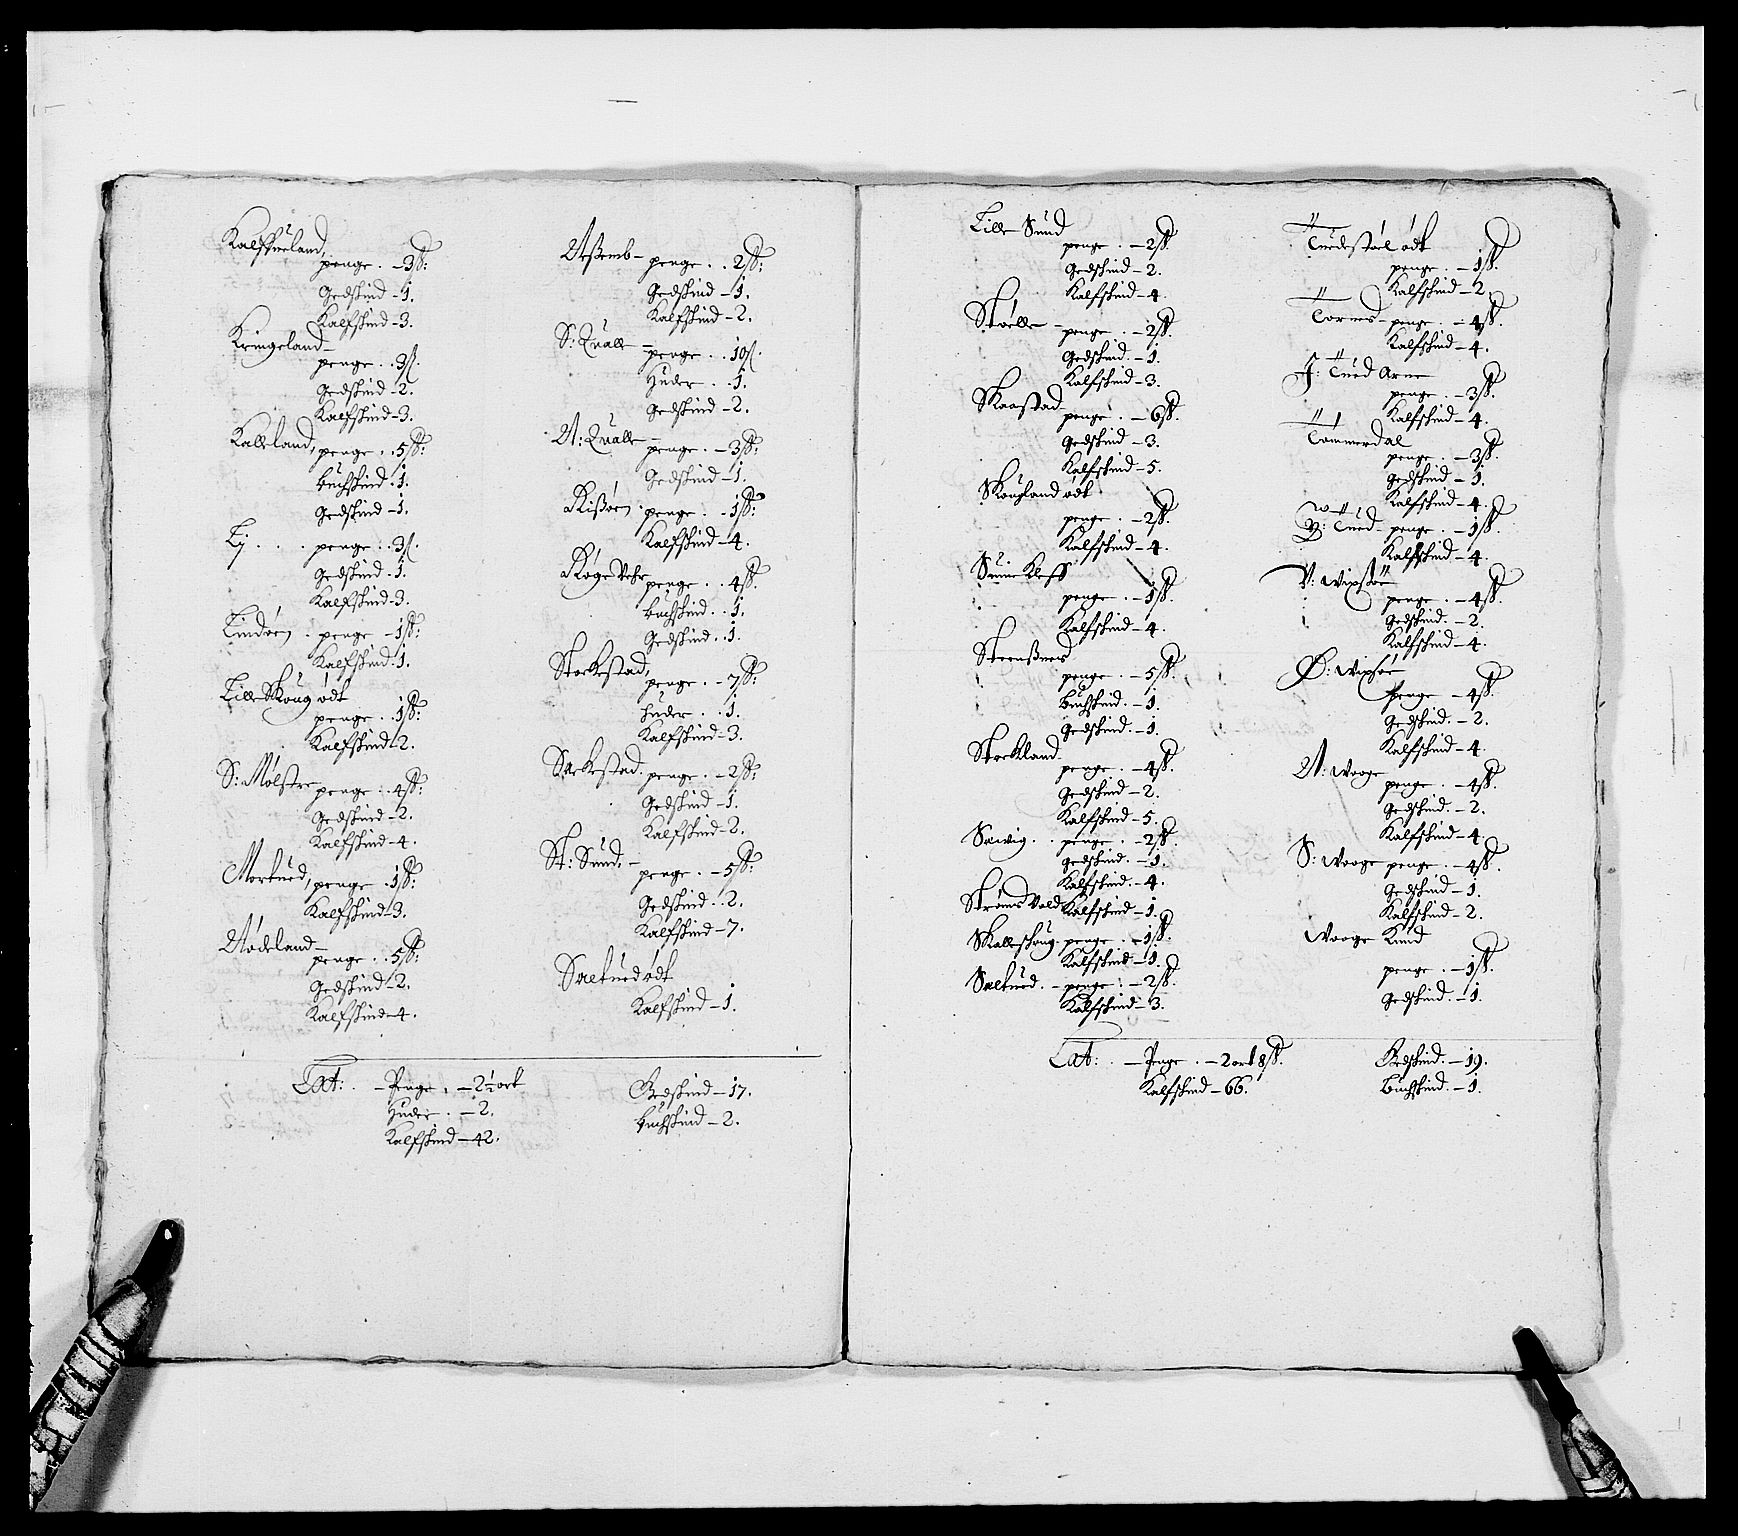 Kalffueland,
penge . – 3ß:
Gedskind – 1.
Kalfskind – 3.
Kringeland –
penge . . 3ß.
Gedskind – 2.
Kalfskind – 3.
Kalleland, penge . . 5ß:
buchskind . 1.
Gedskind – 1.
Ly . . . penge . . 3ß.
Gedskind . 1.
Kalfskind – 3.
Lindøen . penge – 1ß:
Kalfskind . 1.
Lille Skoug ødt
penge . . 1ß:
Kalfskind – 2.
S: Mølstre penge . . 4ß:
Gedskind – 2.
Kalfskind – 4.
Morkued, penge . 1ß:
Kalfskind – 3.
Nødeland –
penge . . 5ß:
Gedskind – 2.
Kalfskind – 4.
Neßemb – penge . . 2ß:
Gedskind – 1.
Kalfskind – 2.
S: Qualle –
penge . . 10ß.
Huder . . 1.
Gedskind – 2.
N: Qualle –
penge . – 3ß:
Gedskind – 1.
Rißøen . penge . . 1ß:
Kalfskind – 4.
Røge Vehr penge . . 4ß:
buchskind . . 1.
Gedskind . . 1.
Stockestad,
penge . – 7ß:
huder . . 1.
Kalfskind – 3.
Sackestad . penge . – 2ß:
Gedskind – 1.
Kalfskind – 2.
St: Sund. –
penge . – 5ß:
Gedskind . . 2.
Kalfskind – 7.
Saltued ødt
Kalfskind – 1.
Lat: . – Penge . – 2½ ort
Huder . – 2.
Kalfskind – 42.
Gedskind – 17.
buchskind – 2.
Lille Sund
penge . – 2ß.
Gedskind – 2.
Kalfskind – 4.
Stølle – penge . – 2ß.
Gedskind . – 1.
Kalfskind – 3.
Skaastad
penge . – 6ß.
Gedskind – 3.
Kalfskind – 5.
Skougland ødt
penge . – 2ß.
Kalfskind – 4.
Sune Kleff
penge . – 1ß.
Kalfskind – 4.
Steensnes
penge . – 5ß.
buchskind . – 1.
Gedskind . – 1.
Stockland
penge . – 4ß.
Gedskind – 2.
Kalfskind – 5.
Sawig . . penge . – 2ß.
Gedskind . – 1.
Kalfskind . – 4.
Strøms Vold Kalfskind – 1.
Skalleskoug . penge . – 1ß.
Kalfskind – 1.
Saltued . – penge . – 2ß.
Kalfskind – 3.
Tuedestøel ødt
penge . – 1ß.
Kalfskind – 2.
Tornes – penge . – 4ß.
Kalfskind – 4.
J: Tued Arne
penge . – 3ß.
Kalfskind – 4.
Tømmerdal
penge . – 3ß.
Gedskind – 1.
Kalfskind – 4.
Tued – penge . – 1ß.
Kalfskind – 4.
V: Wixsøe
penge . – 4ß.
Gedskind . – 2.
Kalfskind – 4.
Ø: Wixsøe
penge – 4ß.
Gedskind . – 2.
Kalfskind – 4.
N: Wooge
penge . – 4ß.
Gedskind . – 2.
Kalfskind – 4.
S: Wooge penge . – 4ß.
Gedskind – 1.
Kalfskind – 2.
Wooge Kind
penge . – 1ß.
Gedskind . – 1.
Lat: . – Penge . – 2 ort 8ß.
Kalfskind – 66.
Gedskind . – 19.
buchskind . – 1.